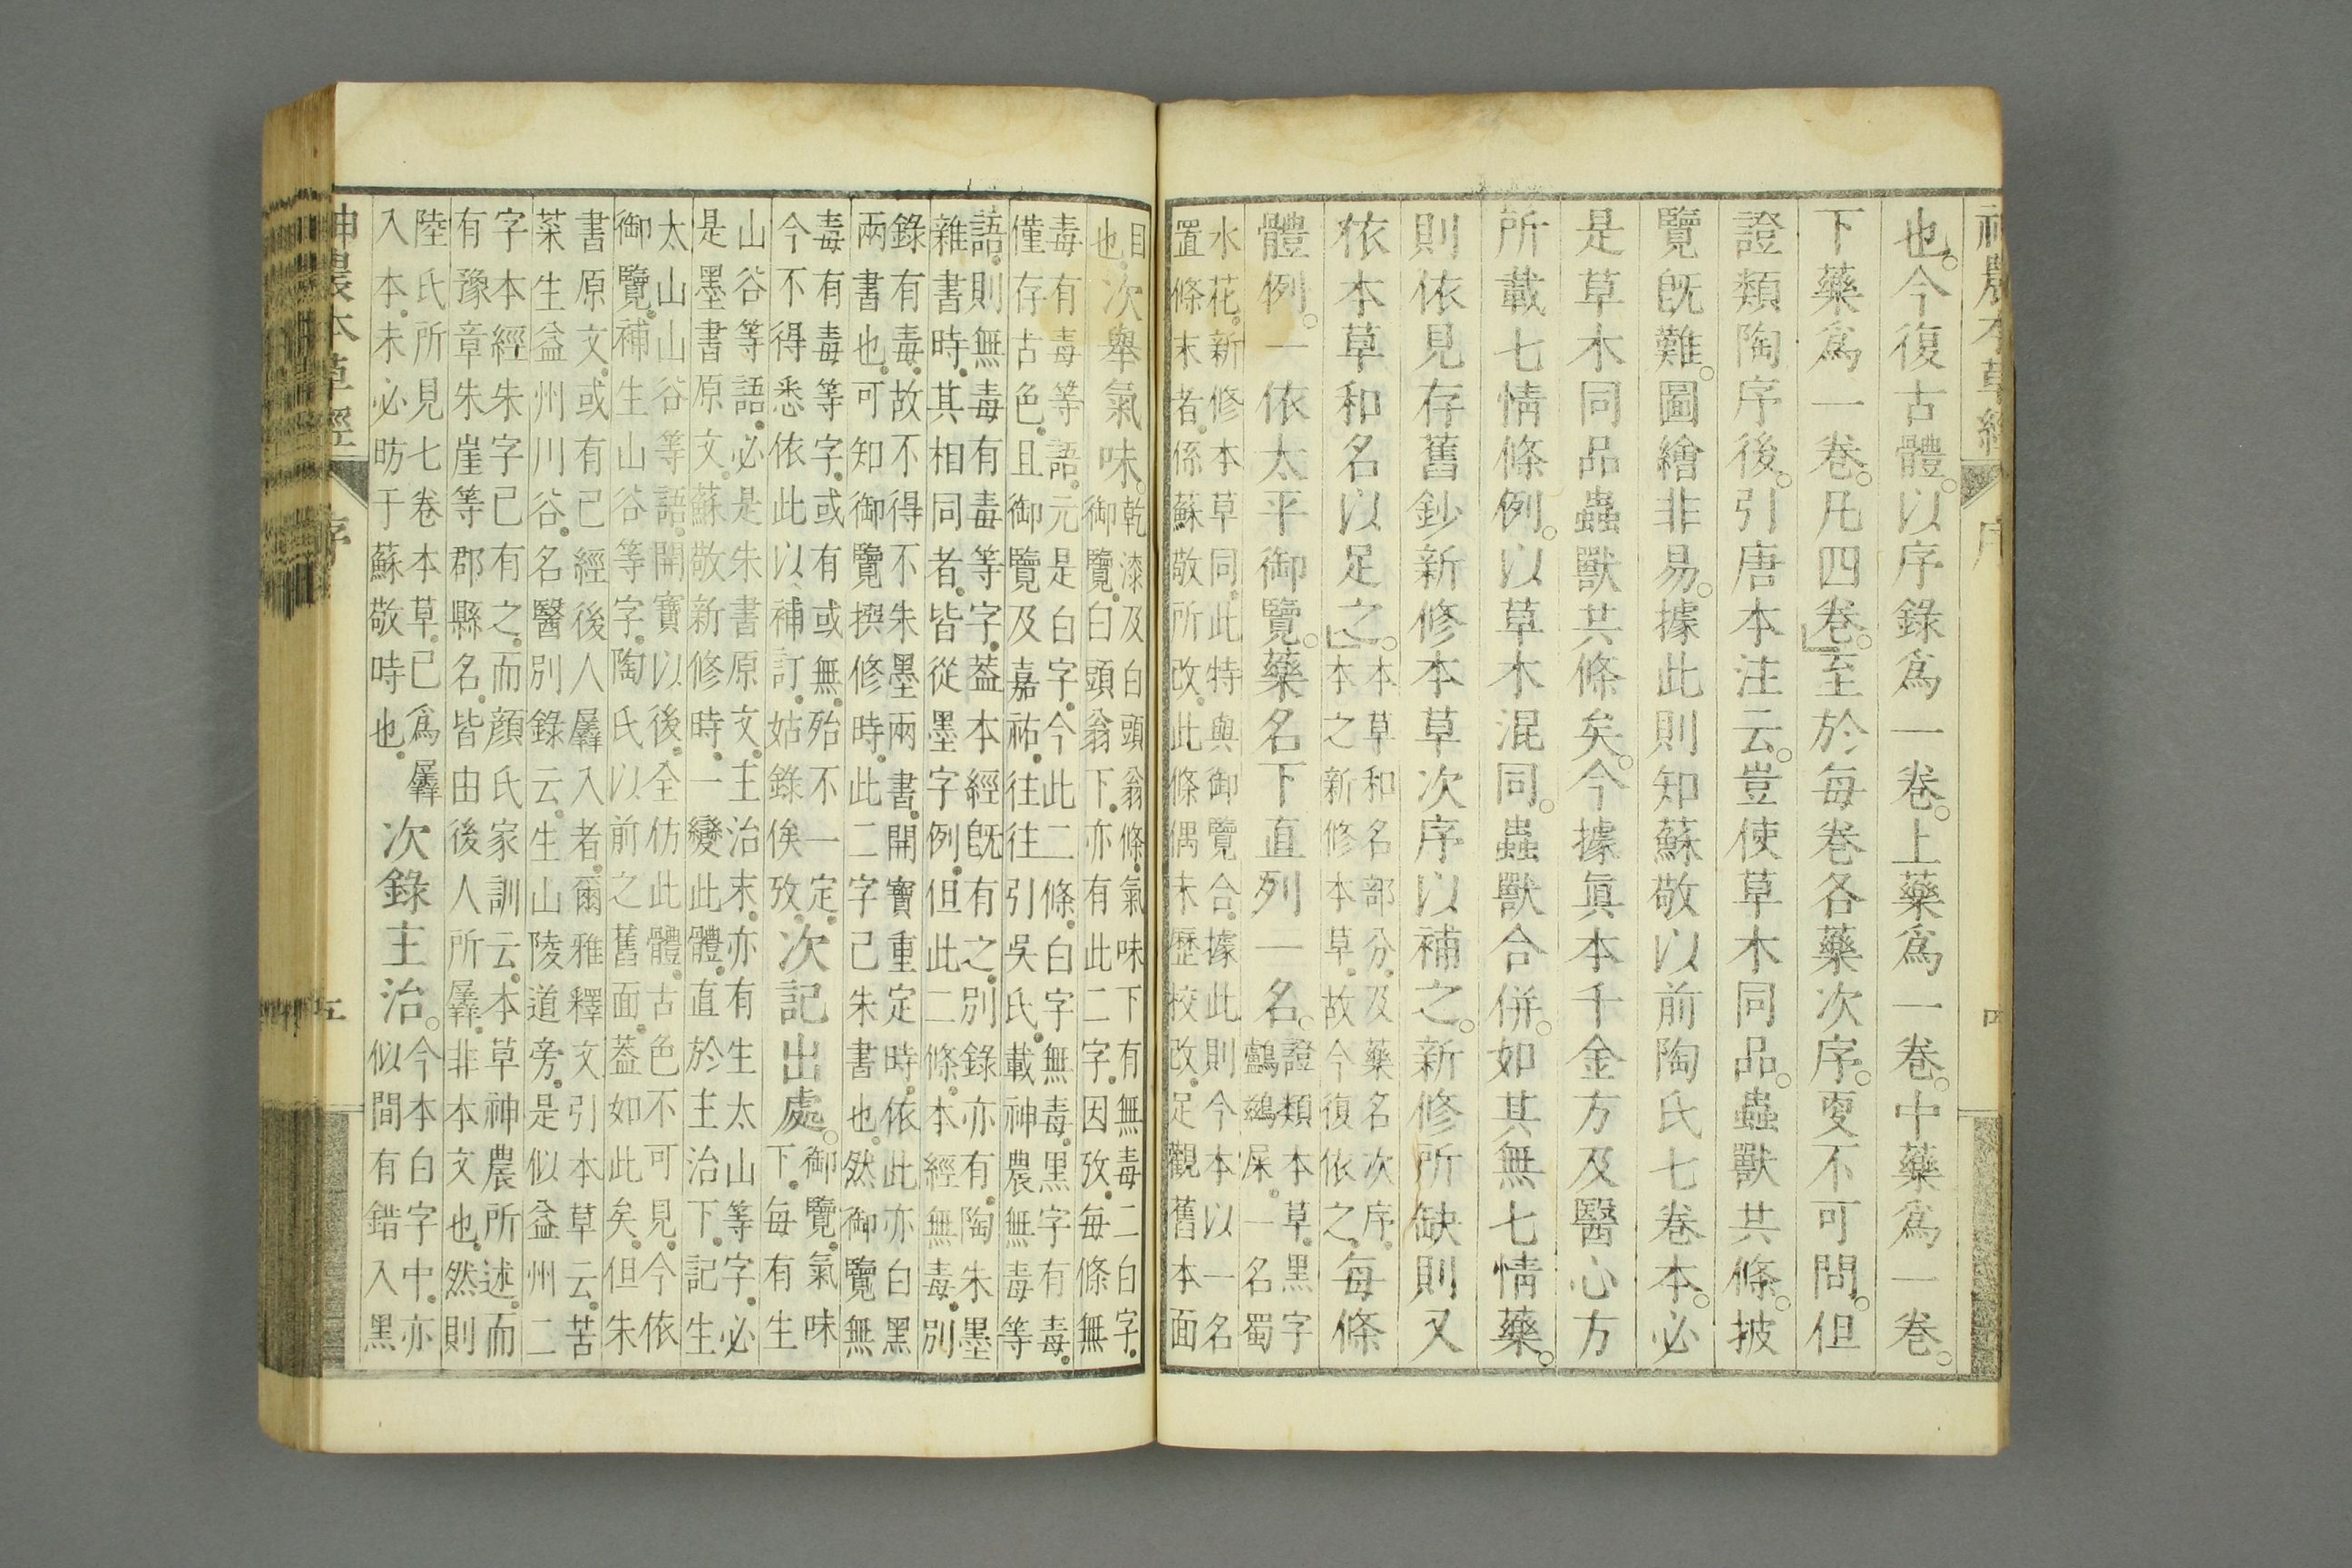 神農本草經 序 四
也。今復古體。以序錄爲一卷。上藥爲一卷。中藥爲一卷。
下藥爲一卷。凡四卷。至於每卷各藥次序。叓不可問。但
證類陶序後。引唐本注云。豈使草木同品。蟲獸共條。披
覽旣難。圖繪非易。據此則知蘇敬以前陶氏七卷本。必
是草木同品蟲獸共條矣。今據眞本千金方及醫心方
所載七情條例。以草木混同。蟲獸合併。如其無七情藥。
則依見存舊鈔新修本草次序以補之。新修所缺則又
依本草和名以足之。
本草和名部分。及藥名次序。
本之新修本草。故今復依之。
每條
體例。一依太平御覽。藥名下直列一名。
證類本草。黑字
鸕鷀屎。一名蜀
水花。新修本草同。此特與御覽合。據此則今本以一名
置條末者。係蘇敬所改。此條偶未歷校改。足觀舊本面
目
也。
次舉氣味。
乾漆及白頭翁條。氣味下有無毒二白字。
御覽。白頭翁下。亦有此二字。因攷。每條無
毒有毒等語。元是白字。今此二條。白字無毒。黑字有毒。
僅存古色。且御覽及嘉祐。往往引吳氏。載神農無毒等
語。則無毒有毒等字。葢本經旣有之。別錄亦有。陶朱墨
雜書時。其相同者。皆從墨字例。但此二條。本經無毒。別
錄有毒。故不得不朱墨兩書。開寶重定時。依此亦白黑
兩書也。可知御覽撰修時。此二字已朱書也。然御覽無
毒有毒等字。或有或無。殆不一定。
今不得悉依此以補訂。姑錄俟攷。
次記出處。
御覽。氣味
下。每有生
山谷等語。必是朱書原文。主治末。亦有生太山等字。必
是墨書原文。蘇敬新修時。一變此體。直於主治下。記生
太山山谷等語。開寶以後。全仿此體。古色不可見。今依
御覽。補生山谷等字。陶氏以前之舊面。葢如此矣。但朱
書原文。或有已經後人羼入者。爾雅釋文引本草云。苦
菜生益州川谷。名醫別錄云。生山陵道旁。是似益州二
字本經朱字已有之。而顏氏家訓云。本草神農所述。而
有豫章朱崖等郡縣名。皆由後人所羼。非本文也。然則
陸氏所見七卷本草。已爲羼
入本。未必昉于蘇敬時也。
次錄主治。
今本白字中。亦
似間有錯入黑
神農本草經 序 五